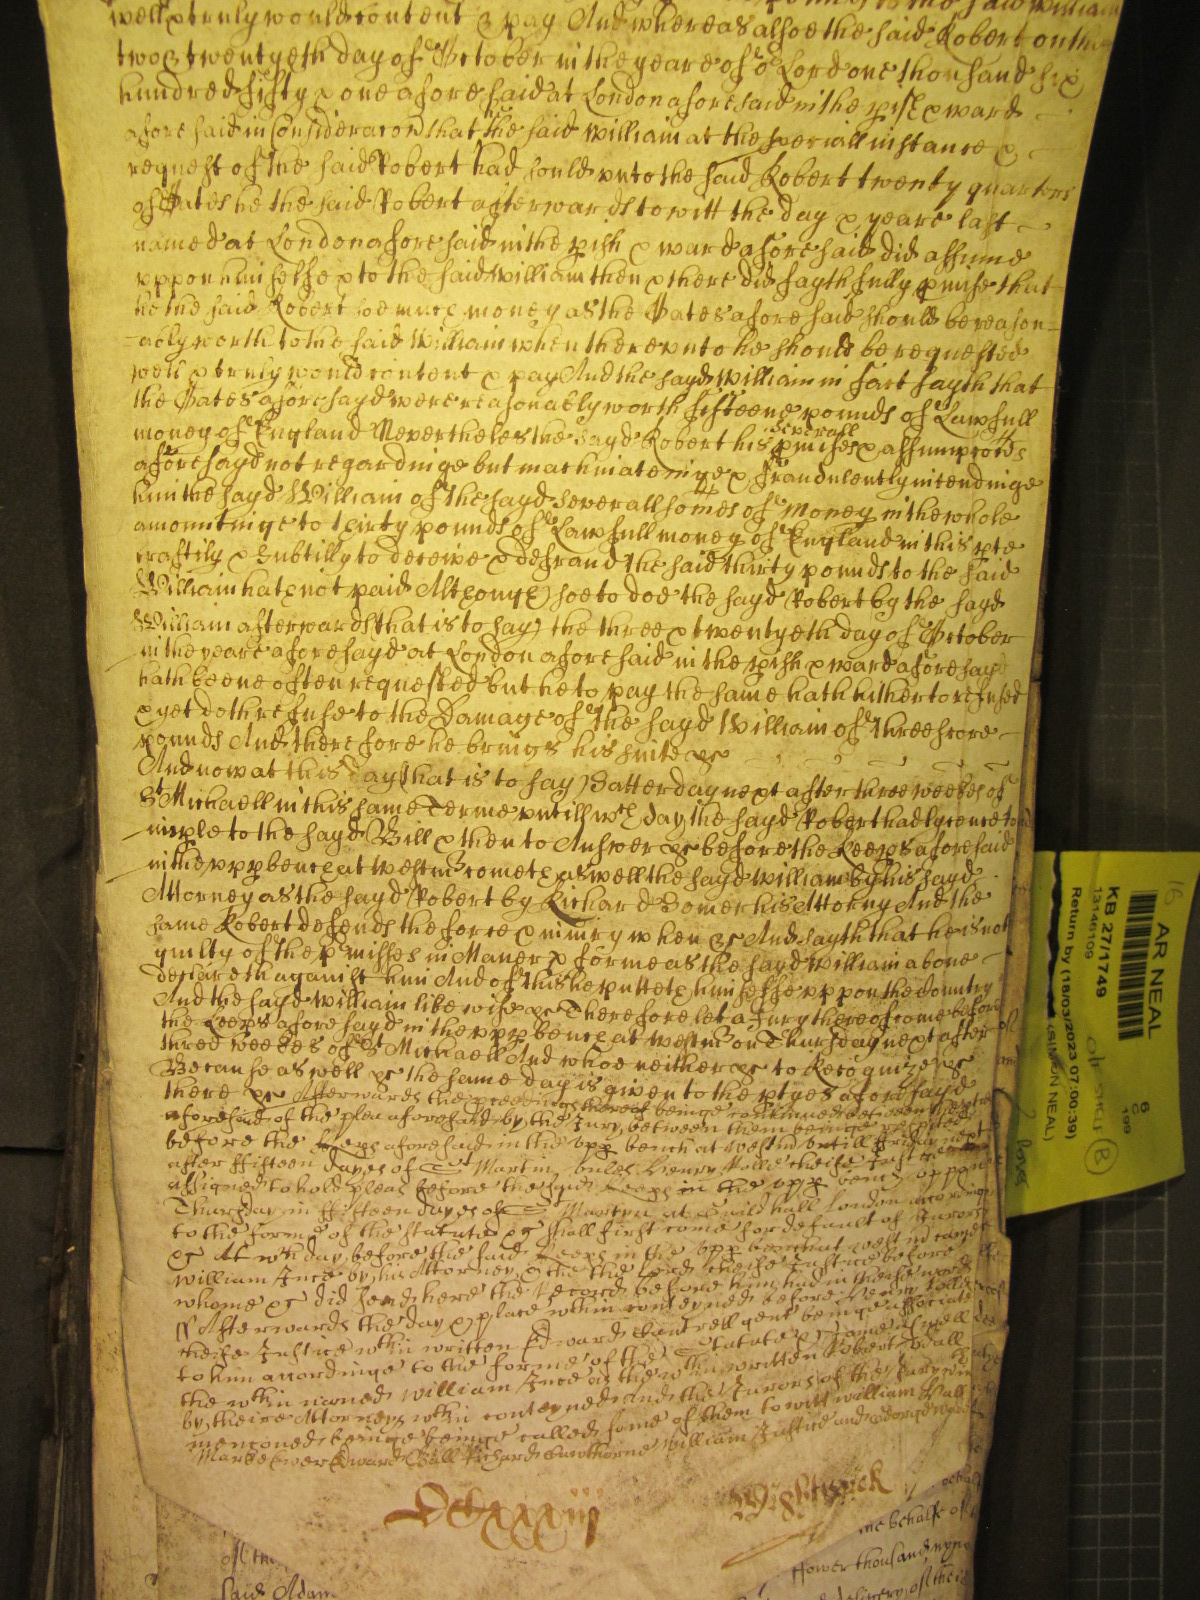 well & truly would content & pay And whereas alsoe the said Robert on the
two & twentyeth day of October in the yeare of or Lord one thousand six
hundred fifty & one aforesaid at London aforesaid in the pish & ward
aforesaid in Consideracon that the said William at the speciall instance &
request of the said Robert had sould unto the said Robert twenty quarters
of Oates he the said Robert afterwards to witt the day & yeare last
named at London aforesaid in the pish & ward aforesaid did assume
uppon himselfe & to the said William then & there did faythfully pmise that
he the said Robert soe much money as the Oates aforesaid should be reason-
ably worth to the said William when thereunto he should be requested
well & truly would content & pay And the sayd William in fact sayth that
the Oates aforesayd were reasonably worth fifteene pounds of Lawfull
money of England Neverthelesthe sayd Robert his severall pmises & assumpcons
aforesayd not regardinge but machinateinge & fraudulently intendinge
him the sayd William of the sayd severall somes of money in the whole
amountinge to thirty pounds of Lawfull money of England in this pte
craftily & subtilly to deceive & defraud the said thirty pounds to the said
William hath not paid Although soe to doe the sayd Robert by the sayd
William afterwards that is to say the three & twentyeth day of October
in the yeare aforesayd at London aforesaid in the pish & ward aforesayd
hath beene often requested but he to pay the same hath hitherto refused
& yet doth refuse to the Damage of the sayd William of threescore
pounds And therefore he brings his suite &c
And now at this day that is to say Satterday next after three weekes of
St Michaell in this same Terme untill wch day the sayd Robert had lycence to
imple to the sayd Bill & then to Answer &c before the Keeps aforesaid
in the upp bench at Westmr cometh aswell the sayd William by his sayd
Attorney as the sayd Robert by Richard Somer his Attorny And the
same Robert defends the force & iniury when &c And sayth that he is not
guilty of the pmisses in Maner & forme as the sayd William above
declareth against him And of this he putteth himselfe uppon the Country
And the sayd William likewise &c Therefore let a Jury thereof come before
the Keeps aforesayd in the upp bench at Westmr on Thursday next after
three weekes of St Michaell And whoe neither &c to Recognize &c
Because aswell &c the same day is given to the ptyes aforesayd
there &c Afterwards the pceedings thereof beinge continued betweene the pties
aforesaid of the plea aforesaid by the Jury betweene them beinge respited
before the Keeps aforesaid in the upp bench at Westmr untill Friday next
after fifteen dayes of St Martin unles Henry Rolle cheife Justice
assigned to hold pleas before the said Keeps in the upp bench uppon
Thursday in fifteen dayes of St Martyn at Guildhall London accordinge
to the forme of the statute &c shall first come for default of Jurors
&c At wch day before the said Keeps in the upp bench at Westmr cometh
William Ince by his Attorney & the the Lord cheife Justice before
whome &c did send here the Record before him had in theise words
ss Afterwards the day & place wthin conteyned before Henry Rolle
cheife Justice wthin written Edward Cantrell gent beinge associate
to him accordinge to the forme of the Statute &c came aswell
the wthin named William Ince as the wthin written Robert Wall
by theire Attorneys wthin conteyned And the Jurors of the Jury
menconed beinge beinge called some of them to witt William Hall
Marke Ewer Edward Ball Richard Cawthorne William Justice and George
Dclxxxiij
Wightwick
of the
said Adam
behalfe
me behalfe of
ffower thousand nyne
delivery of the
AR NEAL
KB 27/1749
13146109
Return by (18/03/2023 07:00:39)
(SIMON NEAL)
16
6
199
B